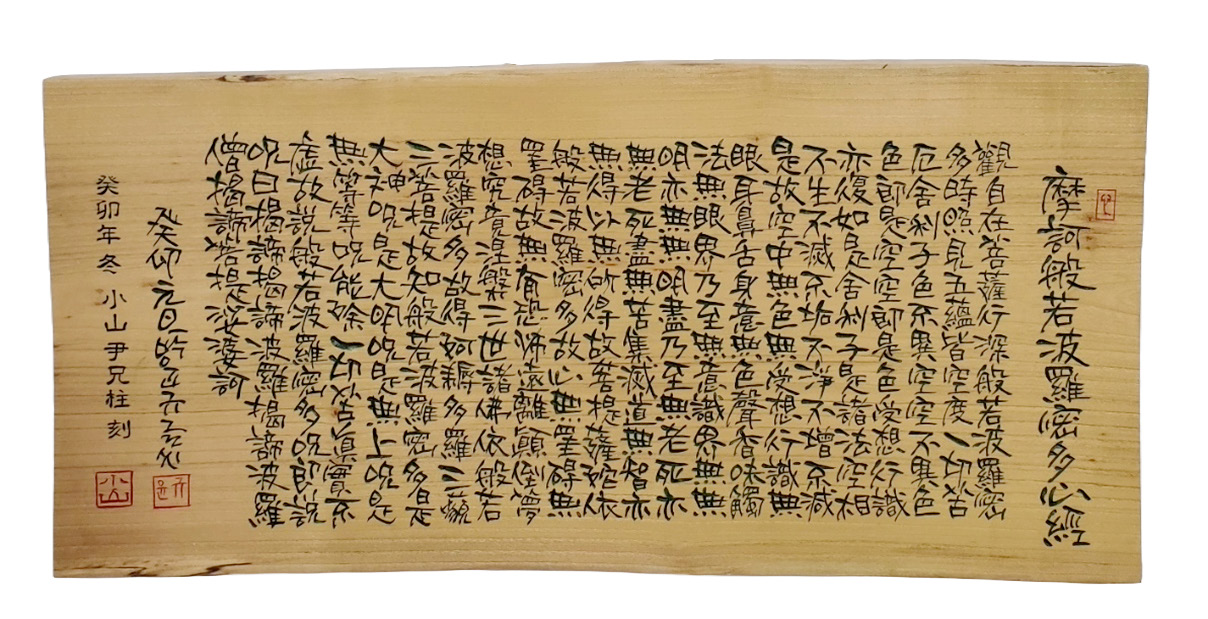 摩訶般若波羅密多心經
觀自在菩薩行深般若波羅密
多時照見五蘊皆空度一切苦
厄舍利子色不異空空不異色
色卽是空空卽是色受想行識
亦復如是舍利子是諸法空相
不生不滅不垢不淨不增不減
是故空中無色無受想行識無
眼耳鼻舌身意無色聲香味觸
法無眼界乃至無意識界無無
明亦無無明盡乃至無老死亦
無老死盡無苦集滅道無智亦
無得以無所得故菩提薩埵依
般若波羅密多故心無罣碍無
罣碍故無有恐怖遠離顚倒夢
想究竟涅槃三世諸佛依般若
波羅密多故得阿耨多羅三藐
三菩提故知般若波羅密多是
大神呪是大明呪是無上呪是
無等等呪能除一切苦眞實不
虛故說般若波羅密多呪卽說
呪曰揭諦揭諦波羅揭諦波羅
僧揭諦菩提娑婆訶
癸卯 元旦
癸卯年冬 小山尹兄柱刻
小山